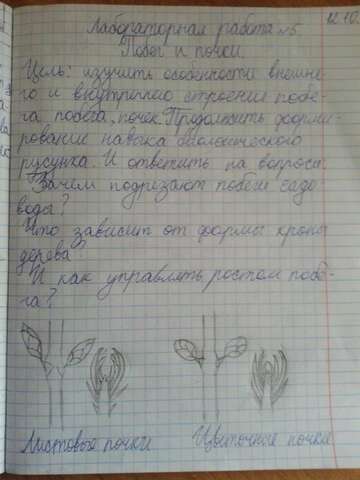 12.10.
Лабораторная работа №5
Побег и почки.
Цель: изучить особенности внешне-
го и внутренно строение побе-
га побега, почек. Продолжить форми-
рование навыка биологического
русунка. И ответить на вопросы.
Зачем подрезают побеги садо-
воды?
Что зависит от формы кроны
дерева?
И как управлять ростом побе-
га?
Листовые почки Цветочные почки